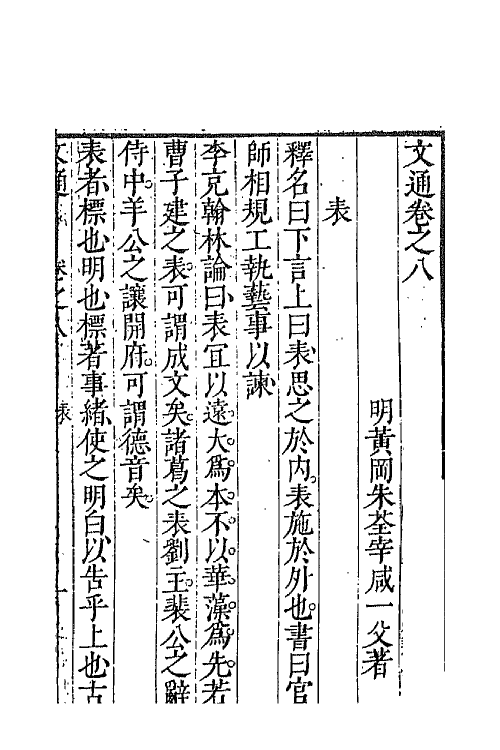 文通卷之八
明黃岡朱荃宰咸一父著
表
釋名曰下言上曰表思之於內表施於外也書曰官
師相規工執藝事以諫
李充翰林論曰表宜以遠大爲本不以華藻爲先若
曹子建之表可謂成文矣諸葛之表劉主裴公之辭
侍中羊公之讓開府可謂德音矣
表者標也明也標著事緒使之明白以告乎上也古
文通 卷之八 表 一